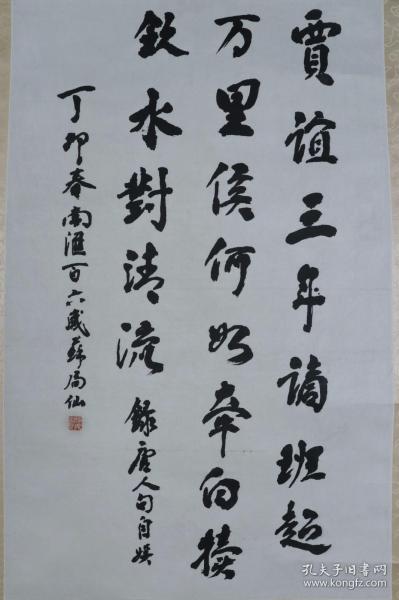 賈誼三年謫班超
万里侯何如牵白犊
飲水對清流 錄唐人句自娱
丁卯春南滙百六歲蘇局仙
孔夫子旧书网
www.kongfz.com